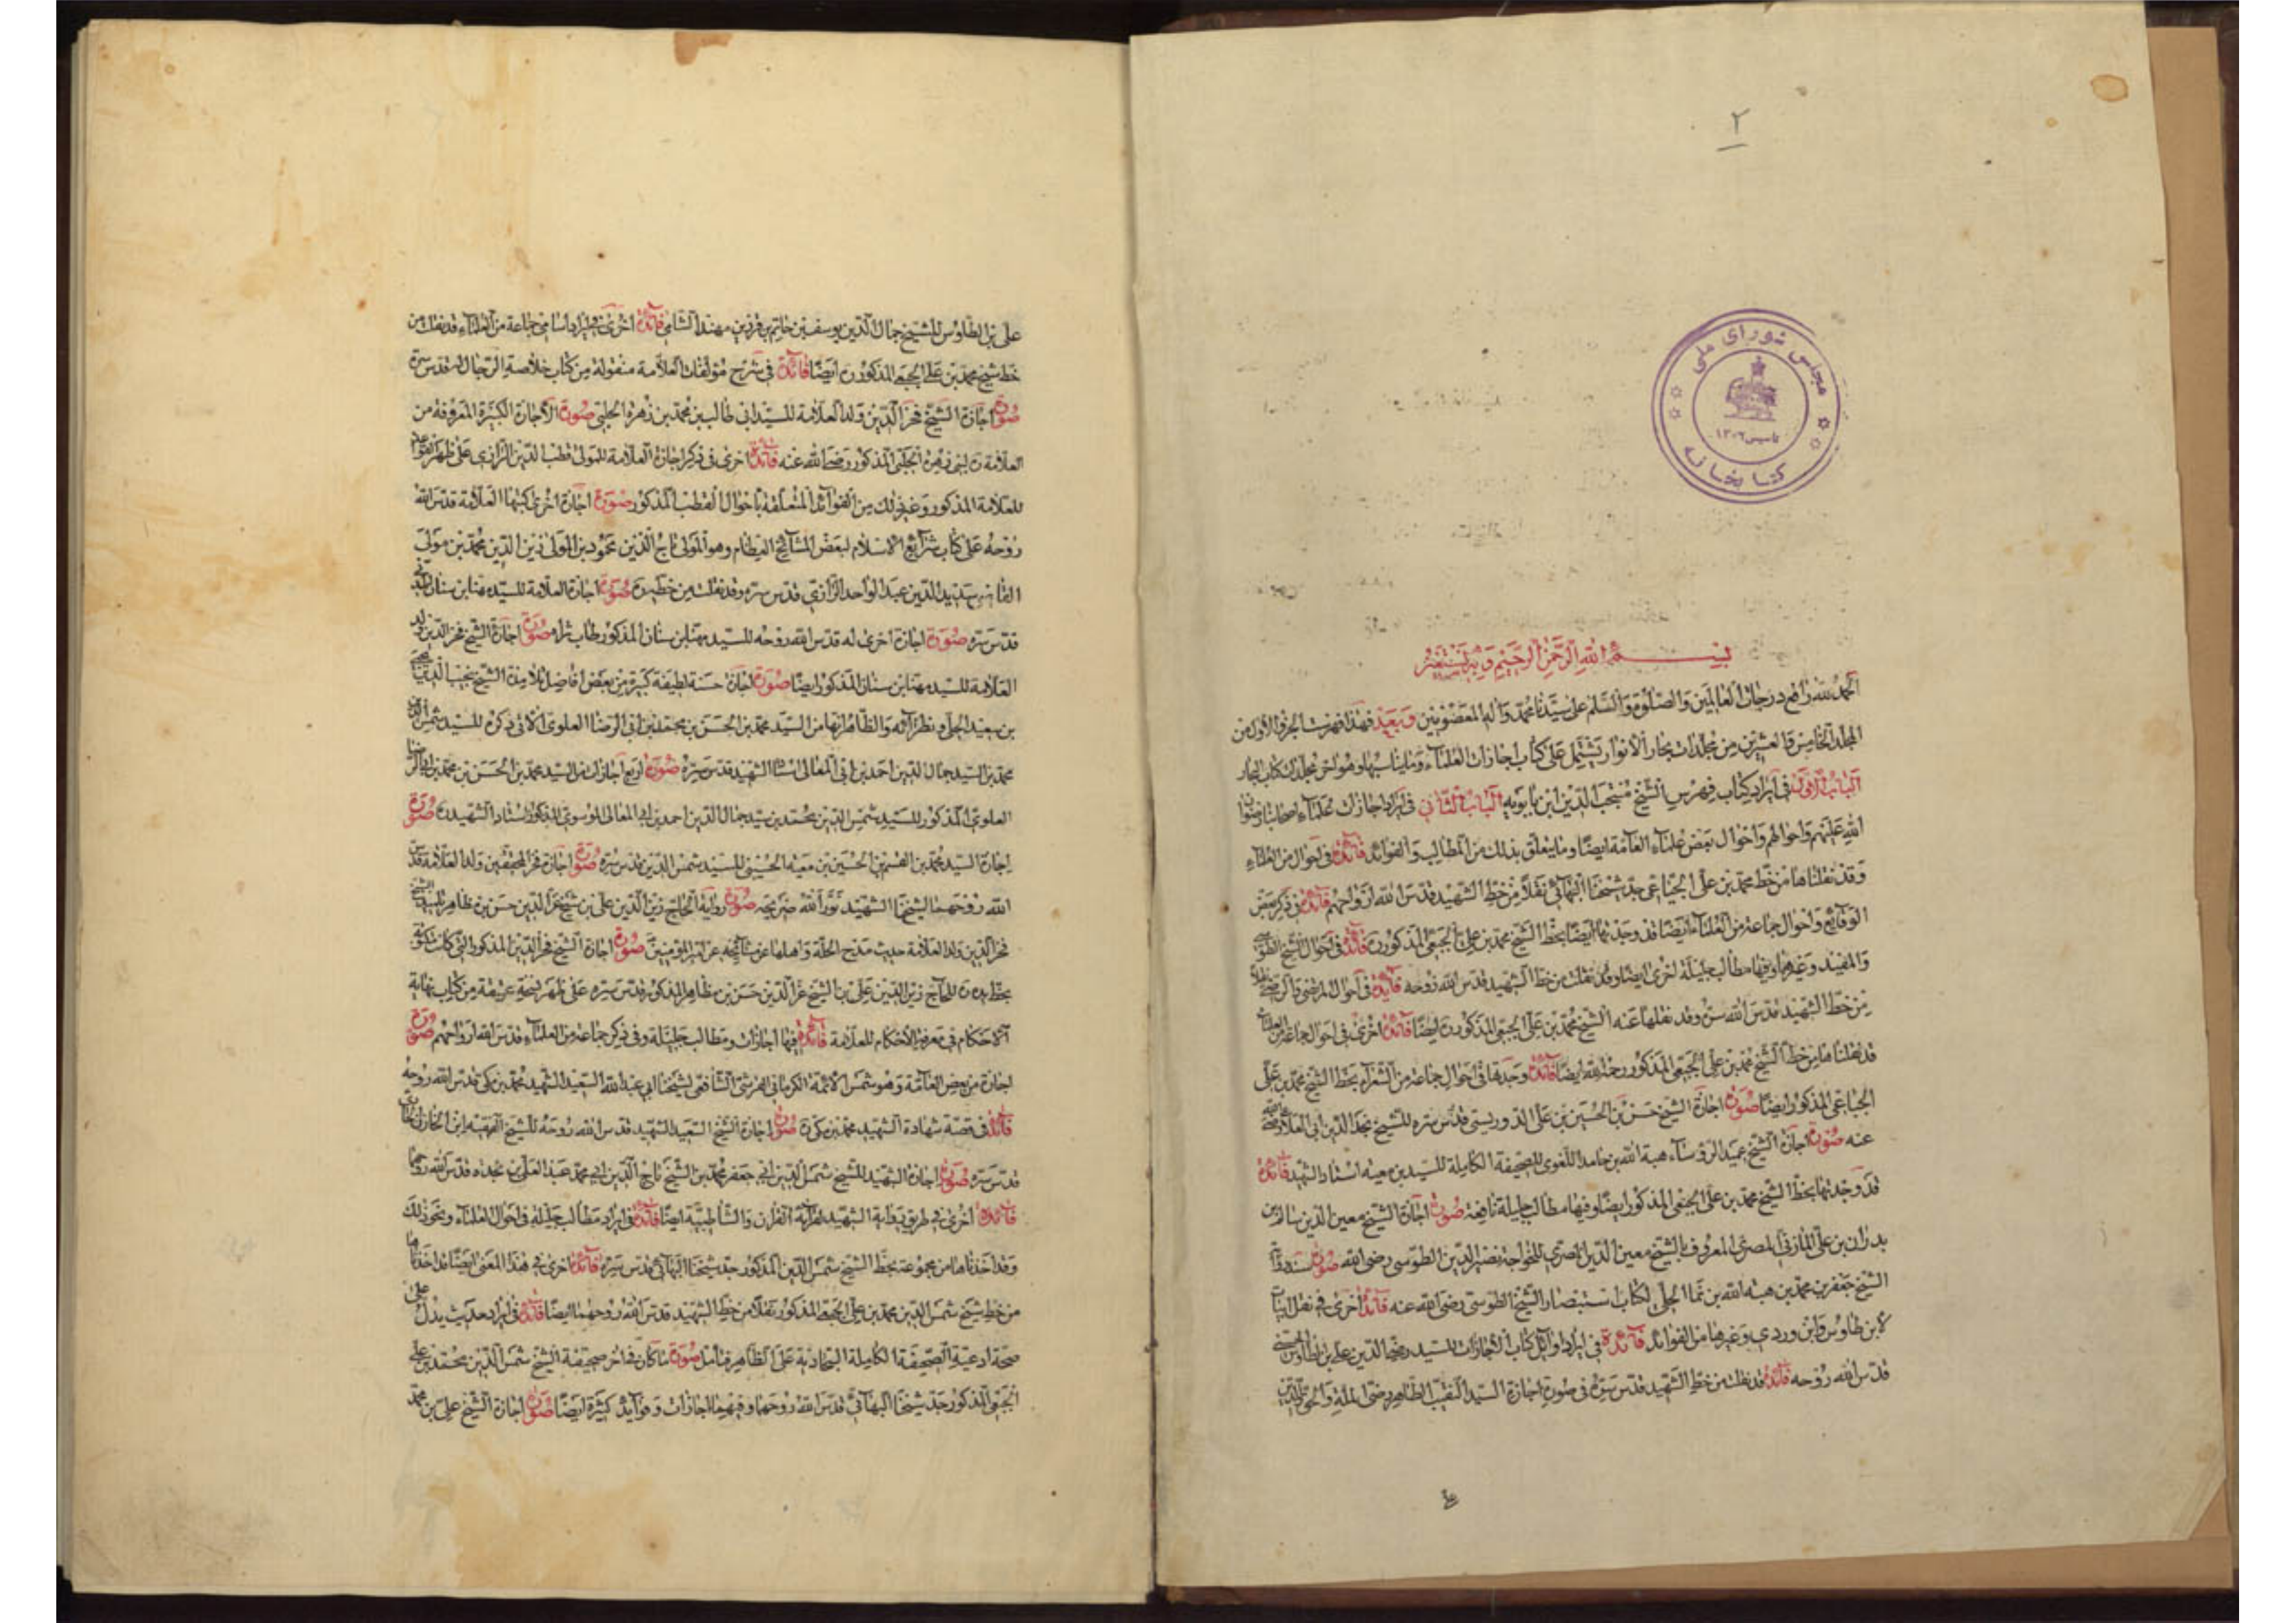 ٢
مجلس شورای ملی
تاسیس ١٣٠٢
کتابخانه
بسم الله الرحمن الرحيم وبه نستعين
الحمد لله رافع درجات العالمين والصلوة والسلم على سيدنا محمد وآله المعصومين وبعد فهذا فهرست الجزء الاول من
المجلد الخامس والعشرين من مجلدات بحار الانوار يشتمل على كتاب اجازات العلماء وما يناسبها وهو آخر مجلدات كتاب البحار
الباب الاول في ايراد كتاب فهرس الشيخ منتجب الدين ابن بابويه الباب الثاني في ايراد اجازات علماء اصحابنا رضوان
الله عليهم واحوالهم واحوال بعض علماء العامة ايضا وما يتعلق بذلك من المطالب والفوائد فائدة في احوال من العلماء
وقد نقلناها من خط محمد بن علي الجباعي جد شيخنا البهائي نقلا من خط الشهيد قدس الله ارواحهم فائدة في ذكر بعض
الوقائع واحوال جماعة من العلماء ايضا قد وجدتها ايضا بخط الشيخ محمد بن علي الجبعي المذكور ره فائدة في احوال الشيخ الطوسي
والمفيد وغيرهما وفيها مطالب جليلة اخرى ايضا وقد نقلت من خط الشهيد قدس الله روحه فائدة في احوال المرتضى
من خط الشهيد قدس الله سره وقد نقلها عنه الشيخ محمد بن علي الجبعي المذكور ره ايضا فائدة اخرى في احوال جماعة من العلماء
قد نقلناها من خط الشيخ محمد بن علي الجبعي المذكور رحمه الله ايضا فائدة وجدتها في احوال جماعة من الشعراء بخط الشيخ محمد بن علي
الجباعي المذكور ايضا صورة اجازة الشيخ حسن بن الحسين بن علي الدوريستي قدس سره للشيخ مجد الدين ابي العلاء رضي الله
عنه صورة اجازة الشيخ عميد الرؤساء هبة الله بن حامد اللغوي للصحيفة الكاملة للسيد بن معيه استاد الشهيد فائدة
قد وجدتها بخط الشيخ محمد بن علي الجبعي المذكور ايضا وفيها مطالب جليلة نافعة صورة اجازة الشيخ معين الدين سالم بن
بدران بن علي المازني المصري المعروف بالشيخ معين الدين المصري للخواجة نصير الدين الطوسي رضي الله صورة
الشيخ جعفر بن محمد بن هبة الله بن نما الحلي لكتاب استبصار الشيخ الطوسي رضي الله عنه فائدة اخرى في نقل ابيات
لابن طاوس وابن وردي وغيرها من الفوائد فائدة في ايراد اوائل كتاب الاجازات للسيد رضي الدين علي بن طاوس الحسني
قدس الله روحه فائدة قد نقلت من خط الشهيد قدس سره في صورة اجازة السيد النقيب الطاهر رضي الملة والحق والدين
علي بن الطاوس للشيخ جمال الدين يوسف بن حاتم بن فوز بن مهند الشامي فائدة اخرى في ايراد اسامي جماعة من العلماء قد نقلت من
خط شيخ محمد بن علي الجبعي المذكور ره ايضا فائدة في شرح مؤلفات العلامة منقولة من كتاب خلاصة الرجال له قدس سره
صورة اجازة الشيخ فخر الدين ولد العلامة للسيد ابي طالب بن محمد بن زهرة الحلبي صورة الاجازة الكبيرة المعروفة من
العلامة ره لبني زهرة الحلبي المذكور رضي الله عنه فائدة اخرى في ذكر اجازة العلامة للمولى قطب الدين الرازي على ظهر القواعد
للعلامة المذكور وغير ذلك من الفوائد المتعلقة باحوال القطب المذكور صورة اجازة اخرى كتبها العلامة قدس الله
روحه على كتاب شرايع الاسلام لبعض المشائخ العظام وهو المولى تاج الدين محمود بن المولى زين الدين محمد بن مولى
القاضي سديد الدين عبد الواحد الرازي قدس سره وقد نقلت من خطه ره صورة اجازة العلامة للسيد مهنا بن سنان
قدس سره صورة اجازة اخرى له قدس الله روحه للسيد مهنا بن سنان المذكور طاب ثراه صورة اجازة الشيخ فخر الدين ولد
العلامة للسيد مهنا بن سنان المذكور ايضا صورة اجازة حسنة لطيفة كبيرة من بعض افاضل تلامذة الشيخ نجيب الدين يحيى
بن سعيد الحلي ونظرائه والظاهر انها من السيد محمد بن الحسن بن محمد بن ابي الرضا العلوي الاتي ذكره للسيد شمس الدين
محمد بن السيد جمال الدين احمد بن ابي المعالي استاد الشهيد قدس سره صورة اربع اجازات من السيد محمد بن الحسن بن محمد بن ابي الرضا
العلوي المذكور للسيد شمس الدين محمد بن سيد جمال الدين احمد بن ابي المعالي الموسوي المذكور استاد الشهيد ره صورة
اجازة السيد محمد بن القسم بن الحسين بن معيه الحسيني للسيد شمس الدين قدس سره صورة اجازة فخر المحققين ولد العلامة قدس
الله روحهما لشيخنا الشهيد نور الله ضريحه صورة رواية الحاج زين الدين علي بن شيخ عز الدين حسن بن مظاهر تلميذ الشيخ
فخر الدين ولد العلامة حديث مديح الحلة واهلها عن مشائخه عن امير المؤمنين صورة اجازة الشيخ فخر الدين المذكور التي كانت مكتوبة
بخطه ره للحاج زين الدين علي بن الشيخ عز الدين حسن بن مظاهر المذكور قدس سره على ظهر نسخة عتيقة من كتاب نهاية
الاحكام في معرفة الاحكام للعلامة فائدة فيها اجازات ومطالب جليلة وفي ذكر جماعة من العلماء قدس الله ارواحهم صورة
اجازة من بعض العامة وهو شمس الائمة الكرماني القرشي الشافعي لشيخنا ابي عبد الله السعيد الشهيد محمد بن مكي قدس الله روحه
فائدة في قصة شهادة الشهيد محمد بن مكي ره صورة اجازة الشيخ السعيد الشهيد قدس الله روحه للشيخ الفقيه ابن الخازن الحائري
قدس سره صورة اجازة الشهيد للشيخ شمس الدين ابي جعفر محمد بن الشيخ تاج الدين ابي محمد عبد العلي بن نجده قدس الله روحهما
فائدة اخرى في طريق رواية الشهيد لقرائة القرآن والشاطبية ايضا فائدة في ايراد مطالب جليلة في احوال العلماء ونحو ذلك
وقد اخذناها من مجموعة بخط الشيخ شمس الدين المذكور جد شيخنا البهائي قدس سره فائدة اخرى في هذا المعنى ايضا قد اخذناها
من خط شيخ شمس الدين محمد بن علي الجبعي المذكور نقلا من خط الشهيد قدس الله روحهما ايضا فائدة في ايراد حديث يدل على
صحة ادعية الصحيفة الكاملة السجادية على الظاهر فتأمل صورة ما كان في آخر صحيفة الشيخ شمس الدين محمد بن علي
الجبعي المذكور جد شيخنا البهائي قدس الله روحهما وفيها اجازات وفوائد كثيرة ايضا صورة اجازة الشيخ علي بن محمد